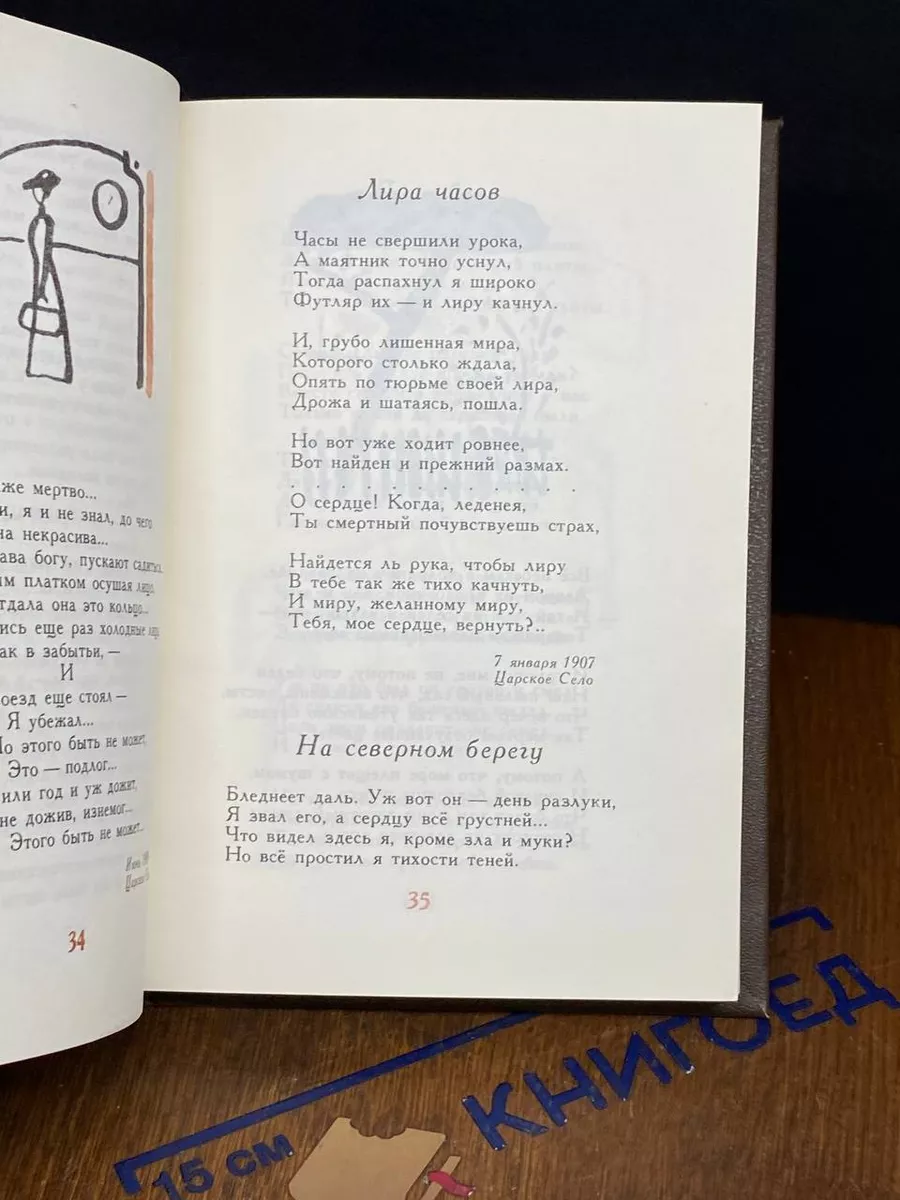 же мертво...
и, я и не знал, до чего
на некрасива...
ава богу, пускают садиться
ым платком осушая лицо
тдала она это кольцо...
ись еще раз холодные
ак в забытьи, —
И
оезд еще стоял —
Я убежал...
Но этого быть не может,
Это — подлог...
или год и уж дожит,
не дожив, изнемог...
Этого быть не может...
34
Лира часов
Часы не свершили урока,
А маятник точно уснул,
Тогда распахнул я широко
Футляр их — и лиру качнул.
И, грубо лишенная мира,
Которого столько ждала,
Опять по тюрьме своей лира,
Дрожа и шатаясь, пошла.
Но вот уже ходит ровнее,
Вот найден и прежний размах.
. . . . . . . . . . . . . . .
О сердце! Когда, леденея,
Ты смертный почувствуешь страх,
Найдется ль рука, чтобы лиру
В тебе так же тихо качнуть,
И миру, желанному миру,
Тебя, мое сердце, вернуть?..
7 января 1907
Царское Село
На северном берегу
Бледнеет даль. Уж вот он — день разлуки,
Я звал его, а сердцу всё грустней...
Что видел здесь я, кроме зла и муки?
Но всё простил я тихости теней.
35
15 см
КНИГОЕД